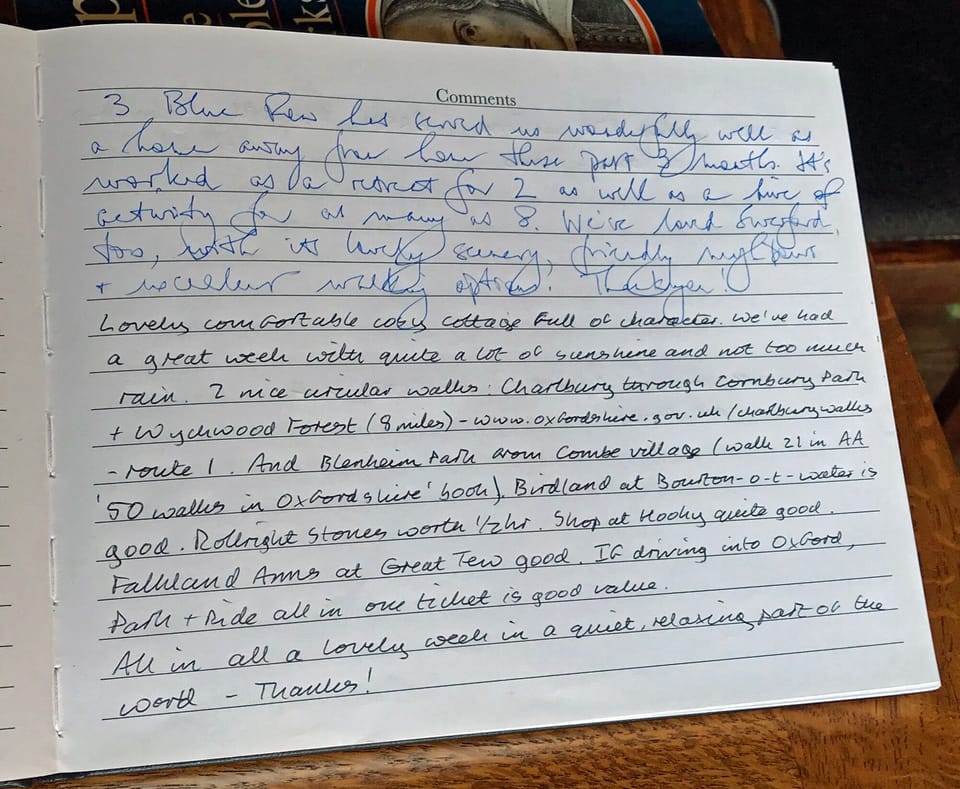 Comments
3 Blue Row has served us wonderfully well as
a home away from home these past 3 months. It's
worked as a retreat for 2 as well as a hive of
activity for as many as 8. We've loved Swerford,
too, with its lovely scenery, friendly neighbours
+ excellent walking options. Thankyou!
Lovely comfortable cosy cottage full of character. We've had
a great week with quite a lot of sunshine and not too much
rain. 2 nice circular walks: Charlbury through Cornbury Park
+ Wychwood Forest (8 miles) - www.oxfordshire.gov.uk/charlburywalks
- route 1. And Blenheim Park from Combe village (walk 21 in AA
'50 walks in Oxfordshire' book). Birdland at Bourton-o-t-water is
good. Rollright Stones worth 1/2 hr. Shop at Hooky quite good.
Falkland Arms at Great Tew good. If driving into Oxford,
Park + Ride all in one ticket is good value.
All in all a lovely week in a quiet, relaxing part of the
world - Thanks!